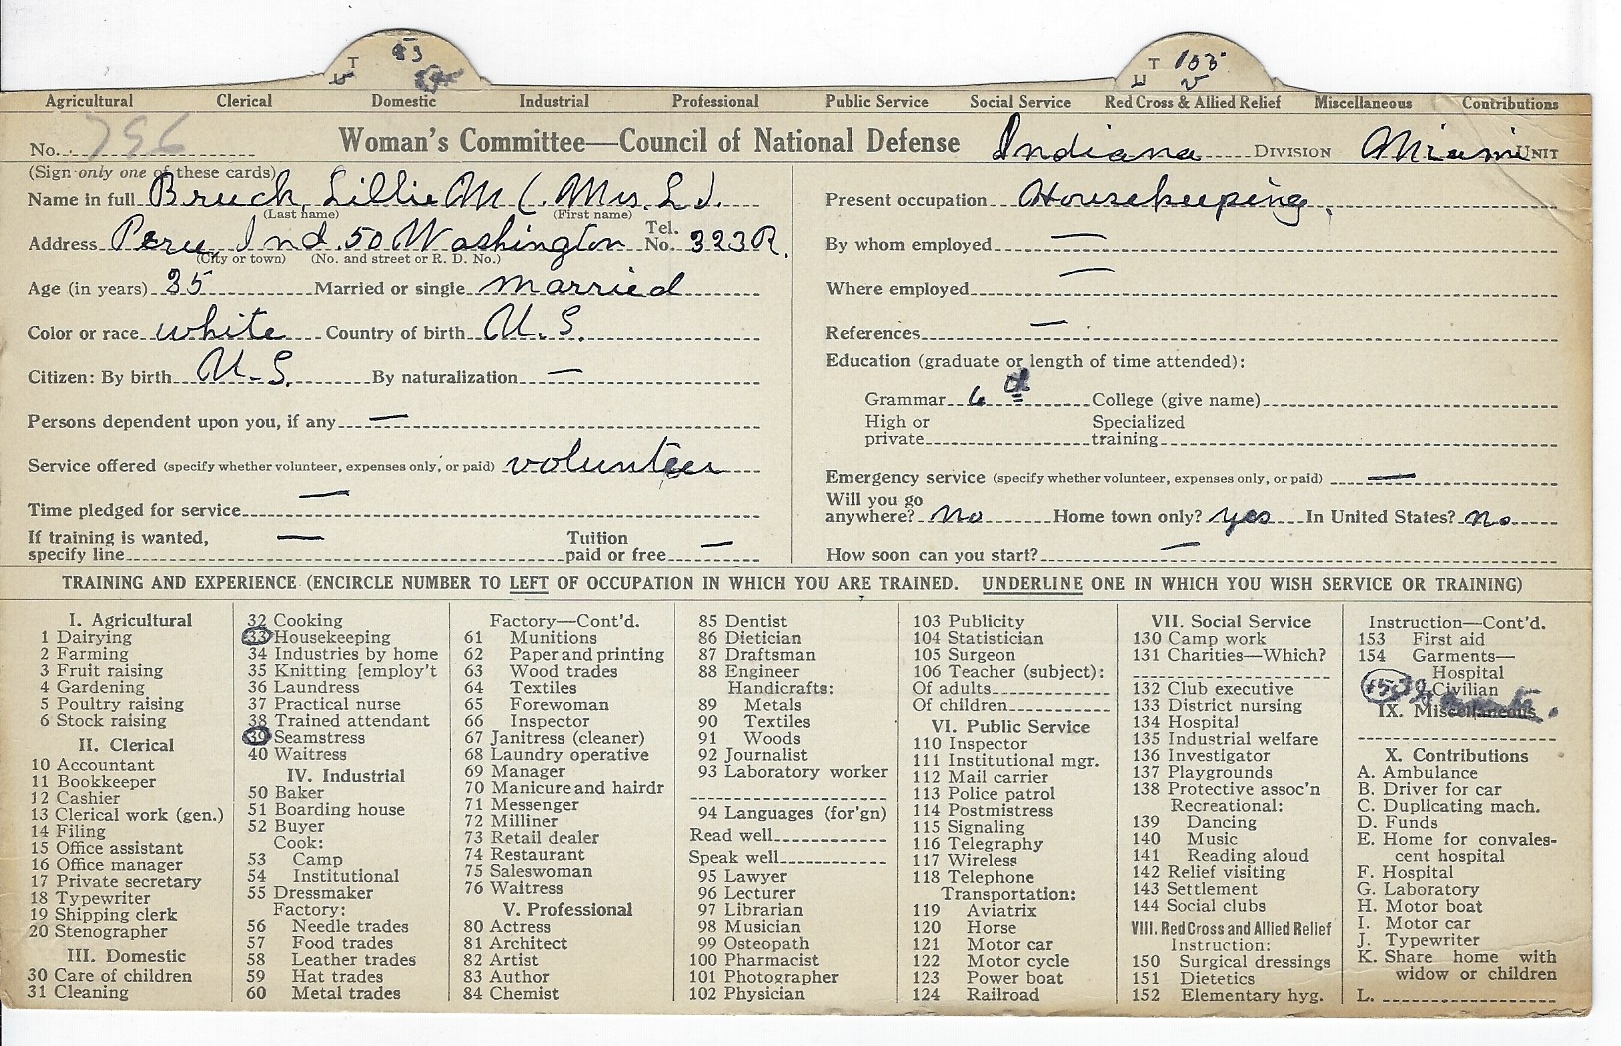 T 33
U
T 155
U v
Agricultural Clerical Domestic Industrial Professional Public Service Social Service Red Cross & Allied Relief Miscellaneous Contributions
No. 796 Woman's Committee—Council of National Defense Indiana DIVISION Miami UNIT
(Sign only one of these cards)
Name in full Bruck, Lillie M (Mrs. L).
(Last name) (First name)
Address Peru, Ind. 50 Washington Tel. No. 323R.
(City or town) (No. and street or R. D. No.)
Age (in years) 35 Married or single married
Color or race white Country of birth U.S.
Citizen: By birth U.S. By naturalization —
Persons dependent upon you, if any —
Service offered (specify whether volunteer, expenses only, or paid) volunteer
Time pledged for service —
If training is wanted, specify line — Tuition paid or free —
Present occupation Housekeeping.
By whom employed —
Where employed —
References —
Education (graduate or length of time attended):
Grammar 6th College (give name)
High or private Specialized training
Emergency service (specify whether volunteer, expenses only, or paid) —
Will you go anywhere? no Home town only? yes In United States? no
How soon can you start? —
TRAINING AND EXPERIENCE (ENCIRCLE NUMBER TO LEFT OF OCCUPATION IN WHICH YOU ARE TRAINED. UNDERLINE ONE IN WHICH YOU WISH SERVICE OR TRAINING)
I. Agricultural
1 Dairying
2 Farming
3 Fruit raising
4 Gardening
5 Poultry raising
6 Stock raising
II. Clerical
10 Accountant
11 Bookkeeper
12 Cashier
13 Clerical work (gen.)
14 Filing
15 Office assistant
16 Office manager
17 Private secretary
18 Typewriter
19 Shipping clerk
20 Stenographer
III. Domestic
30 Care of children
31 Cleaning
32 Cooking
33 Housekeeping
34 Industries by home
35 Knitting [employ't
36 Laundress
37 Practical nurse
38 Trained attendant
39 Seamstress
40 Waitress
IV. Industrial
50 Baker
51 Boarding house
52 Buyer
Cook:
53 Camp
54 Institutional
55 Dressmaker
Factory:
56 Needle trades
57 Food trades
58 Leather trades
59 Hat trades
60 Metal trades
Factory—Cont'd.
61 Munitions
62 Paper and printing
63 Wood trades
64 Textiles
65 Forewoman
66 Inspector
67 Janitress (cleaner)
68 Laundry operative
69 Manager
70 Manicure and hairdr
71 Messenger
72 Milliner
73 Retail dealer
74 Restaurant
75 Saleswoman
76 Waitress
V. Professional
80 Actress
81 Architect
82 Artist
83 Author
84 Chemist
85 Dentist
86 Dietician
87 Draftsman
88 Engineer
Handicrafts:
89 Metals
90 Textiles
91 Woods
92 Journalist
93 Laboratory worker
94 Languages (for'gn)
Read well
Speak well
95 Lawyer
96 Lecturer
97 Librarian
98 Musician
99 Osteopath
100 Pharmacist
101 Photographer
102 Physician
103 Publicity
104 Statistician
105 Surgeon
106 Teacher (subject):
Of adults
Of children
VI. Public Service
110 Inspector
111 Institutional mgr.
112 Mail carrier
113 Police patrol
114 Postmistress
115 Signaling
116 Telegraphy
117 Wireless
118 Telephone
Transportation:
119 Aviatrix
120 Horse
121 Motor car
122 Motor cycle
123 Power boat
124 Railroad
VII. Social Service
130 Camp work
131 Charities—Which?
132 Club executive
133 District nursing
134 Hospital
135 Industrial welfare
136 Investigator
137 Playgrounds
138 Protective assoc'n
Recreational:
139 Dancing
140 Music
141 Reading aloud
142 Relief visiting
143 Settlement
144 Social clubs
VIII. Red Cross and Allied Relief
Instruction:
150 Surgical dressings
151 Dietetics
152 Elementary hyg.
Instruction—Cont'd.
153 First aid
154 Garments—
Hospital
Civilian
IX. Miscellaneous
X. Contributions
A. Ambulance
B. Driver for car
C. Duplicating mach.
D. Funds
E. Home for convales-
cent hospital
F. Hospital
G. Laboratory
H. Motor boat
I. Motor car
J. Typewriter
K. Share home with
widow or children
L.